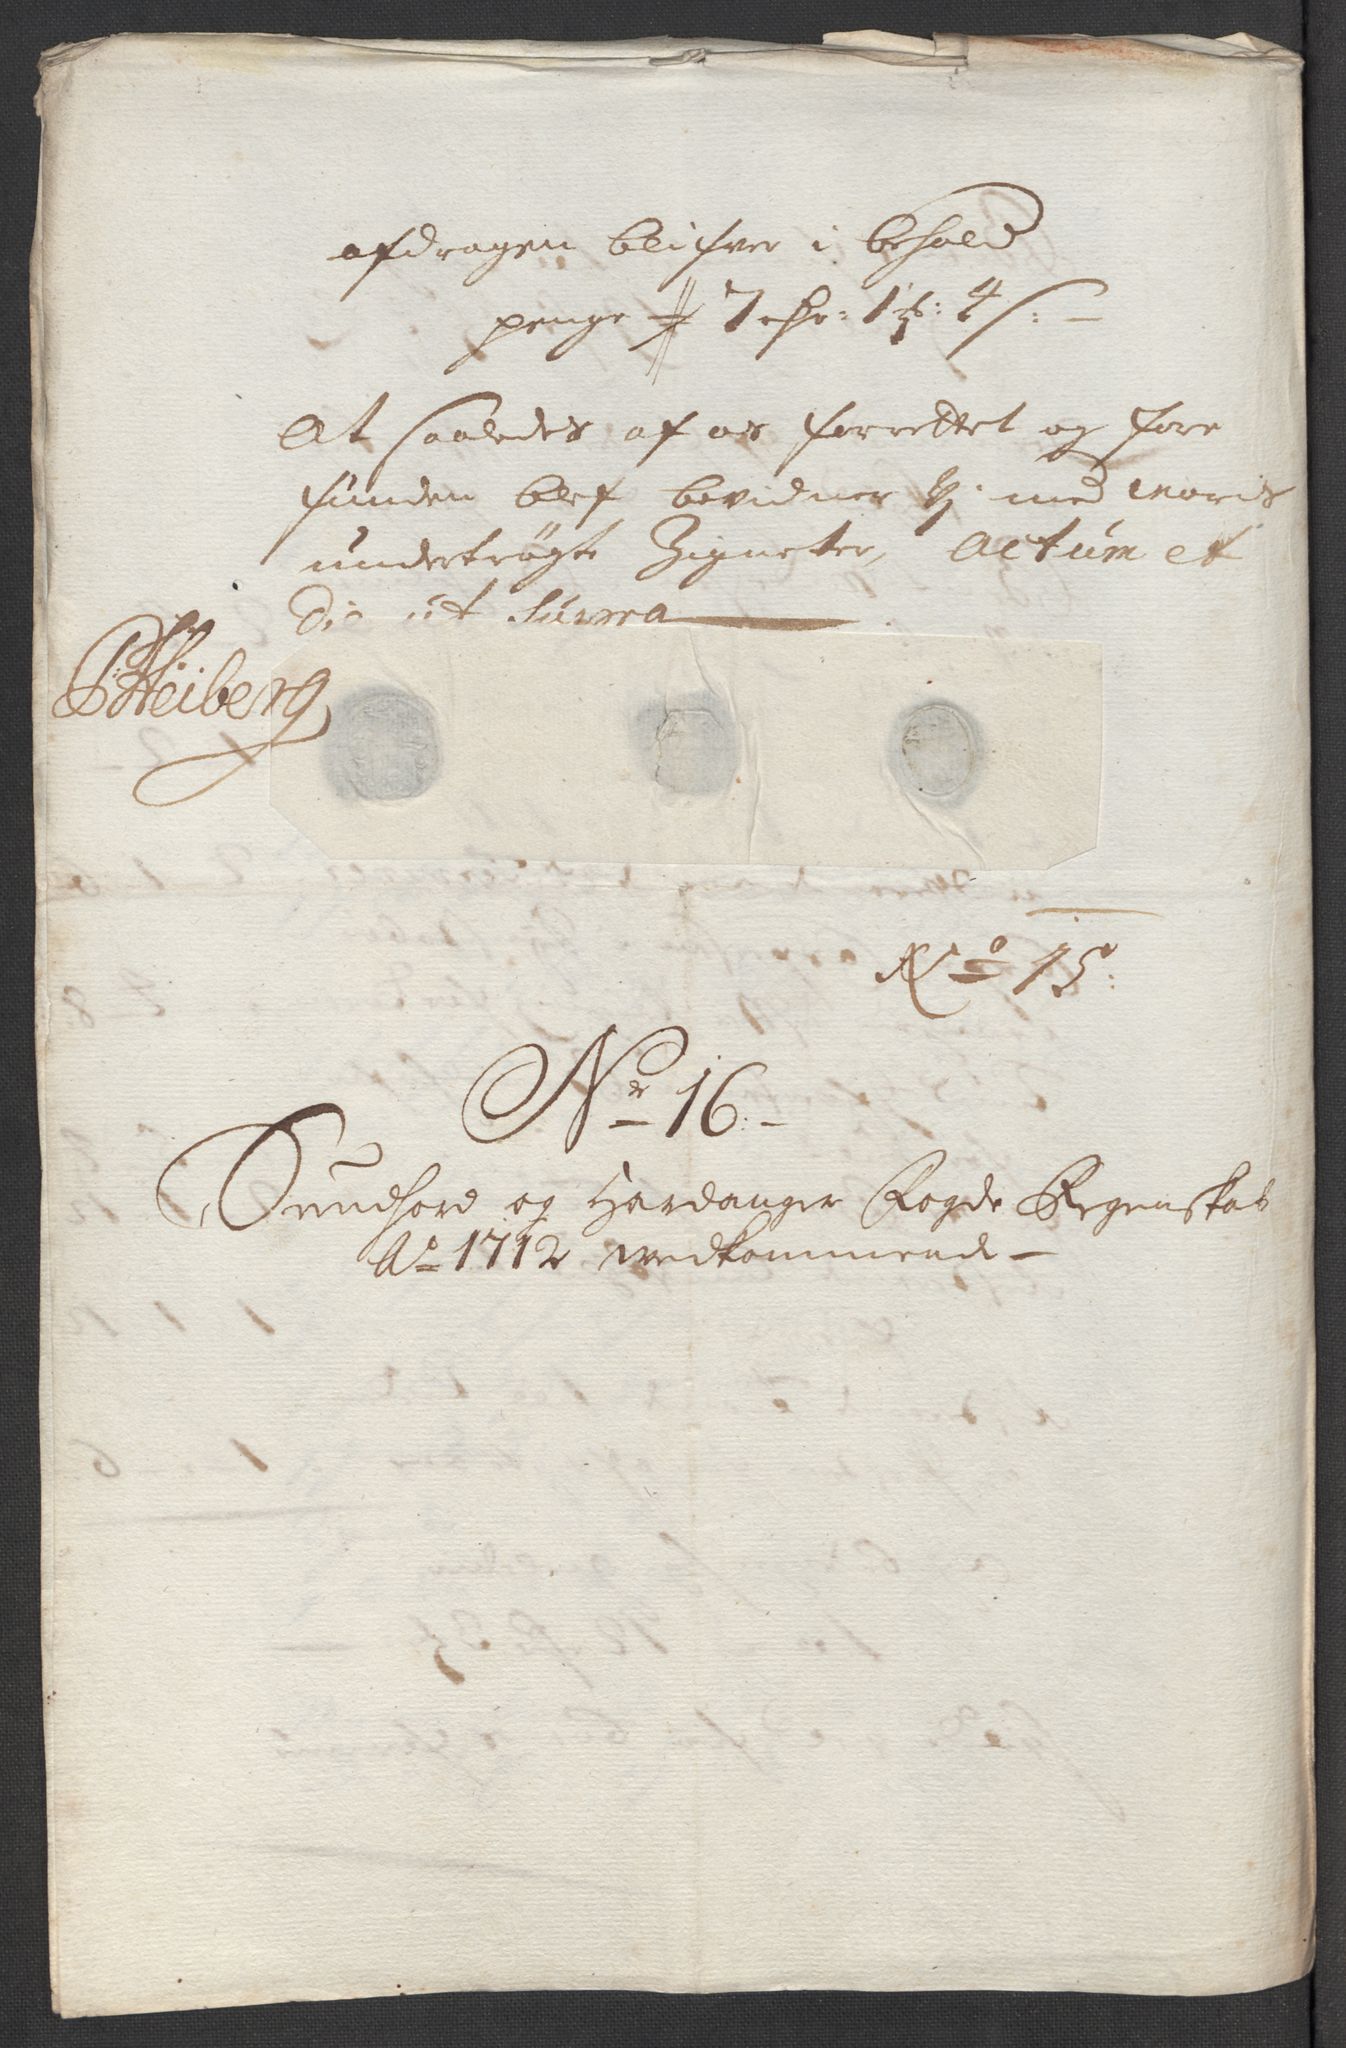 afdragen blifver i behold
penge 7 rdr: 1 ℔: 4 s: –
At saaledes af os forrettet og fore
funden blef bevidner Vj med Voris
undertrögte Zigneter, Actum et
Die ut Supra
P: Heiberg
No 15:
Nr 16:–
Sundhord og Hardanger Fogde Regenskab
Ao 1712 vedkommende –